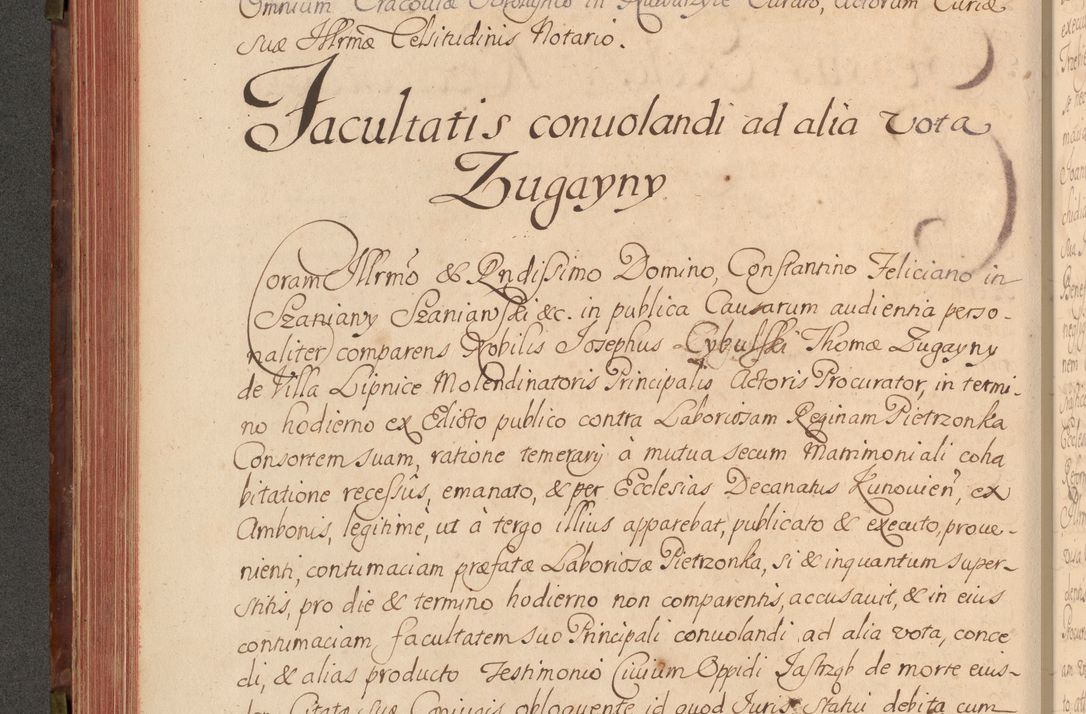 Omnium Cracoviæ in Curato, Actorum Curiæ
suæ Illrmæ Celsitudinis Notario.
Facultatis conuolandi ad alia vota
Zugayny
Coram Illrmo & Rndissimo Domino, Constantino Feliciano in
Szaniawy Szaniawski &c. in publica Causarum audientia perso-
naliter comparens Nobilis Josephus Cybulski Thomæ Zugayny
de Villa Lipnice Molendinatoris Principalis Actoris Procurator, in termi-
no hodierno ex Edicto publico contra Laboriosam Reginam Pietrzonka
Consortem suam, ratione temerarij à mutua secum Matrimoniali coha
bitatione recessûs, emanato, & per Ecclesias Decanatus Kunovien, ex
Ambonis, legitimè, ut à tergo illius apparebat, publicato & executo, prove-
nienti, contumaciam præfatæ Laboriosæ Pietrzonka, si & inquantum super-
stitis, pro die & termino hodierno non comparentis, accusavit, & in eius
contumaciam, facultatem suo Principali conuolandi ad alia vota, conce
di, & alias producto Testimonio Civium Oppidi Jastrząb de morte eius-
Citatæ suæ Coniugis obloquente id quod Juris statui debita cum